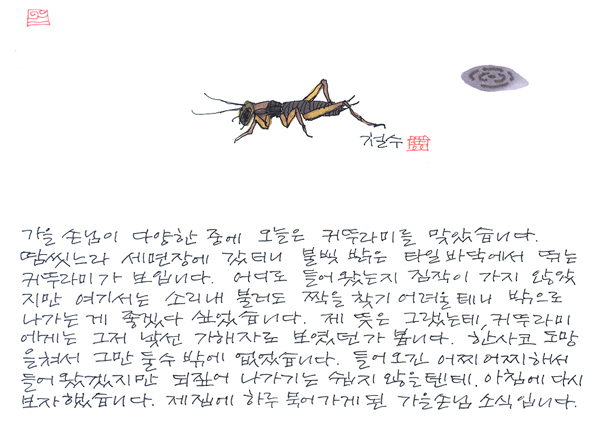 철수
가을 손님이 다양한 중에 오늘은 귀뚜라미를 맞았습니다.
땀씻느라 세면장에 갔더니 불빛 밝은 타일바닥에서 뛰는
귀뚜라미가 보입니다. 어디로 들어왔는지 짐작이 가지 않았
지만 여기서는 소리내 불러도 짝을 찾기 어려울테니 밖으로
나가는게 좋겠다 싶었습니다. 제 뜻은 그랬는데, 귀뚜라미
에게는 그저 낯선 가해자로 보였던가 봅니다. 한사코 도망
을쳐서 그만 둘수 밖에 없었습니다. 들어오긴 어찌어찌해서
들어왔겠지만 되짚어 나가기는 쉽지 않을텐데. 아침에 다시
보자했습니다. 제집에 하루 묵어가게 된 가을손님 소식입니다.